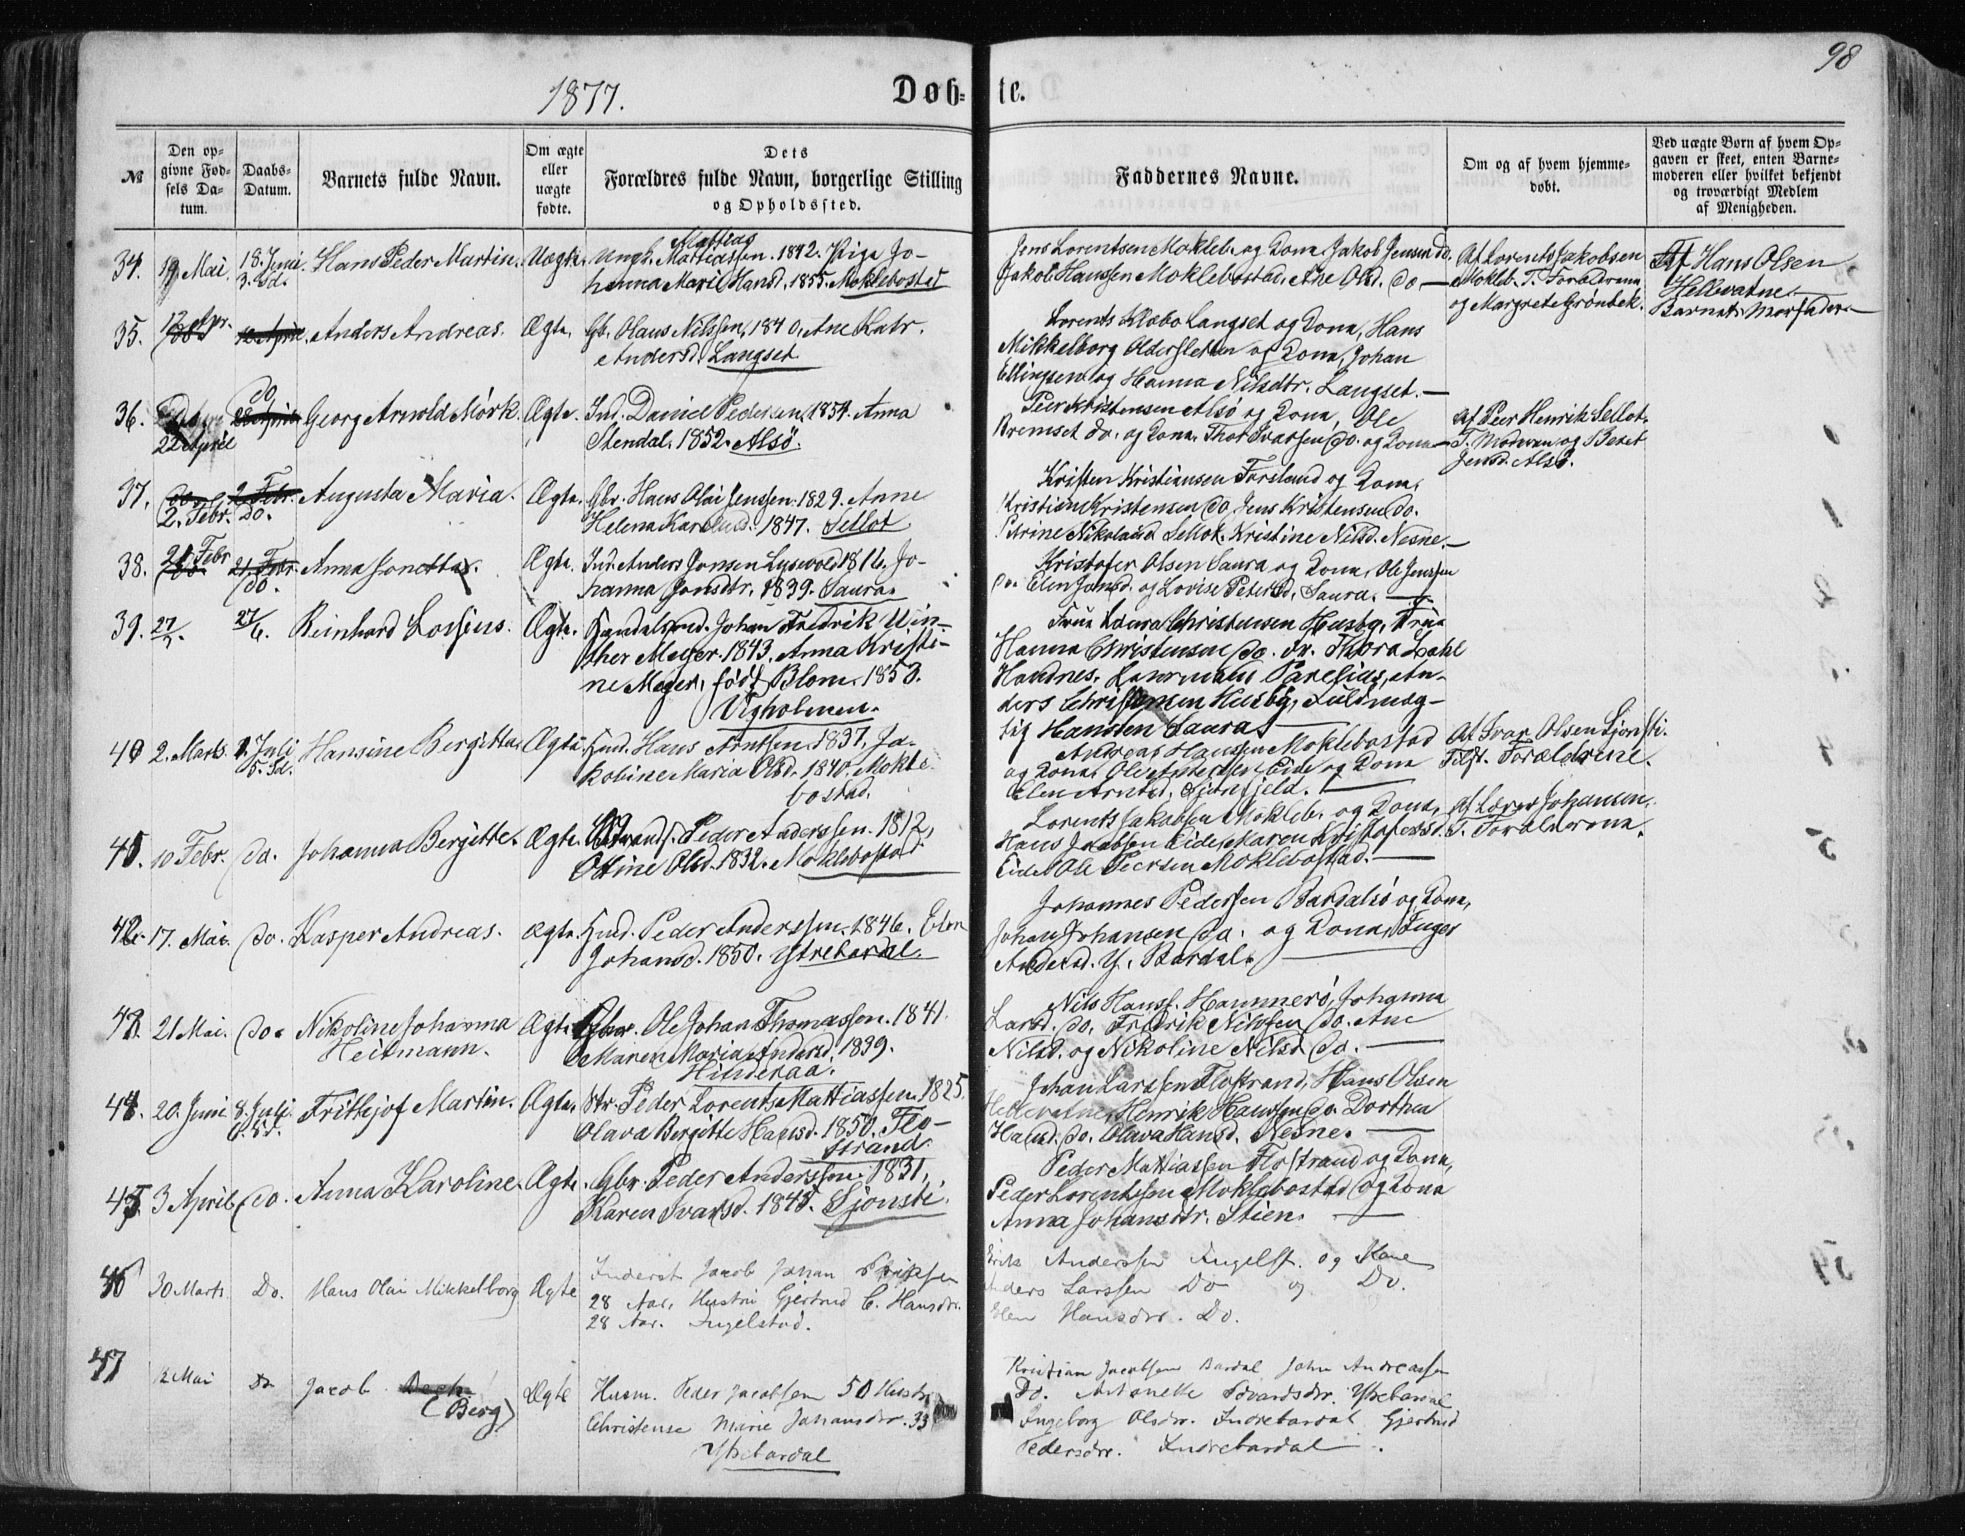 98
1877.
Døb-
te.
№
Den op-
givne Fød-
sels Da-
tum.
Daabs-
Datum.
Barnets fulde Navn.
Om ægte
eller
uægte
fødte.
Dets
Forældres fulde Navn, borgerlige Stilling
og Opholdssted.
Faddernes Navne.
Om og af hvem hjemme-
døbt.
Ved uægte Børn af hvem Op-
gaven er skeet, enten Barne-
moderen eller hvilket bekjendt
og troværdigt Medlem
af Menigheden.
34. 19 Mai. 18. Juni 3. Sd. Hans Peder Martin. Uægte. Ungk. Mattias Mattiassen. 1842. Pige Jo-
hanna Marie Hansd. 1855. Moklebostad
Jens Lorentsen Mokleb. og Kona, Jakob Jensen do.
Jakob Hansen Moklebostad, Ane Olsd. do —
Af Lorents Jakobsen
Mokleb. T. Forældrene
og Margrete Grønbek.
Af Hans Olsen
Hellevatne
Barnets Morfader.
35. 12 Apr. Anders Andreas. Ægte. Gb. Olaus Nilssen, 1840, Ane Katr.
Andersd. Langset
Lorents Klobo Langset og Kona, Hans
Mikkelborg Oldersletten og Kona, Johan
Ellingsen og Hanna Nilsdtr. Langset. —
36. 22 April do Georg Arnold Mörk. Ægte. Ind. Daniel Pedersen, 1854. Anna
Stendal. 1852. Alsö.
Peer Kristensen Alsö og Kona, Ole
Bremset do. og Kona, Thor Ivarsen do. og Kona —
Af Peer Henrik Sellot.
T. Moderen og Beret
Jensd. Alsö.
37. 2. Febr. 2 Febr. do. Augusta Maria. Ægte. Gbr. Hans Olai Jenssen. 1829. Anne
Helena Karlsd. 1847. Sellot
Kristen Kristiansen Forsland og Kona,
Kristian Kristensen do, Jens Kristensen do.
Petrine Nikolaisd Sellot. Kristine Nilsd. Nesne. —
38. 21 Febr. 21. Febr. do. Anna Jonetta. Ægte. Ind. Anders Jonsen Lysevold 1816, Jo-
hanna Jonsdtr. 1839. Saura.
Kristofer Olsen Saura og Kona, Ole Jenssen
do. Elen Jonsd. og Lovise Petersd, Saura. —
39. 27/ 27/6. Reinhard Lossius. Ægte. Handelsmd. Johan Fredrik Win-
ther Meyer. 1843, Anna Kristi-
ne Meyer, född Blom. 1853.
Vigholmen.
Frue Laura Christensen Husby, Frue
Hanna Christensen do. Fr. Thora Dahl
Handnes, Parelius, An-
ders Christensen Husby, Fuldmæg-
tig Hanssen Saura —
40 2. Marts. 1. Juli 5. Sd. Hansine Bergitta Ægte. Hmd. Hans Arntsen. 1837, Ja-
kobine Maria Olsd. 1840. Mokle-
bostad.
Andreas Hanssen Moklebostad
og Kona, Ole Andersen Eide og Kona
Elen Arntsd. Sjonfjeld. —
Af Ivar Olsen Sjonsti.
Tilst. Forældrene.
41. 10 Febr. do. Johanna Bergitte. Ægte. Peder Anderssen. 1812,
Ostine Olsd. 1832. Moklebostad.
Lorents Jakobsen Mokleb. og Kona,
Hans Jakobsen Eide, Karen Kristofersd.
Eide, Ole Peersen Moklebostad. —
Af Lorens Johansen.
T. Forældrene.
42. 17. Mai. do. Kasper Andreas. Ægte. Hmd. Peder Anderssen. 1846. Elen
Johansd. 1850. Ytrebardal.
Johannes Pedersen Bardalsö og Kona,
Johan Johansen do. og Kona, Inger
Andersd. Y. Bardal. —
43. 21 Mai. do. Nikoline Johanna
Heitmann. Ægte Gbr. Ole Johan Thomassen. 1841.
Maren Maria Andersd. 1839.
Hinderaa.
Nils Hansf. Hammerö, Johanna
Larsd. do, Fridrik Nilssen do. Ane
Nilsd. og Nikoline Nilsd do. —
44. 20. Juni 8. Juli 6. Sd. Frithjof Martin. Ægte. Str. Peder Lorents Mattiassen. 1825.
Olava Bergitte Hansd. 1850. Flo-
strand.
Johan Larssen Flostrand, Hans Olsen
Hellevatne, Henrik Hanssen do. Dorthea
Hansd. do. Olava Hansd. Nesne. —
45. 3 April do. Anna Karoline. Ægte. Gbr. Peder Anderssen. 1831,
Karen Ivarsd. 1845 Sjonsti.
Peder Mattiassen Flostrand og Kona,
Peder Lorentssen Moklebostad og Kona
Anna Johansdtr. Stien. —
46 30 Marts Do. Hans Olai Mikkelborg Ægte Inderst Jacob Johan Eriksen
28 Aar, Hustru Gjertrud C. Hansdtr.
28 Aar. Engelstad.
Erik Anderssen Engelst. og Kone
Anders Larssen Do og Do.
Elen Hansdtr. Do.
47 12 Mai Do Jacob
(Berg) Ægte Husm. Peder Jacobsen 50 Hustr.
Christense Marie Johansdtr. 33
Ytrebardal
Kristian Jacobsen Bardal John Andreassen
Do. Antonette Edvardsdtr. Ytrebardal
Ingeborg Olsdtr. Indrebardal Gjertrud
Pedersdtr. Indrebardal.